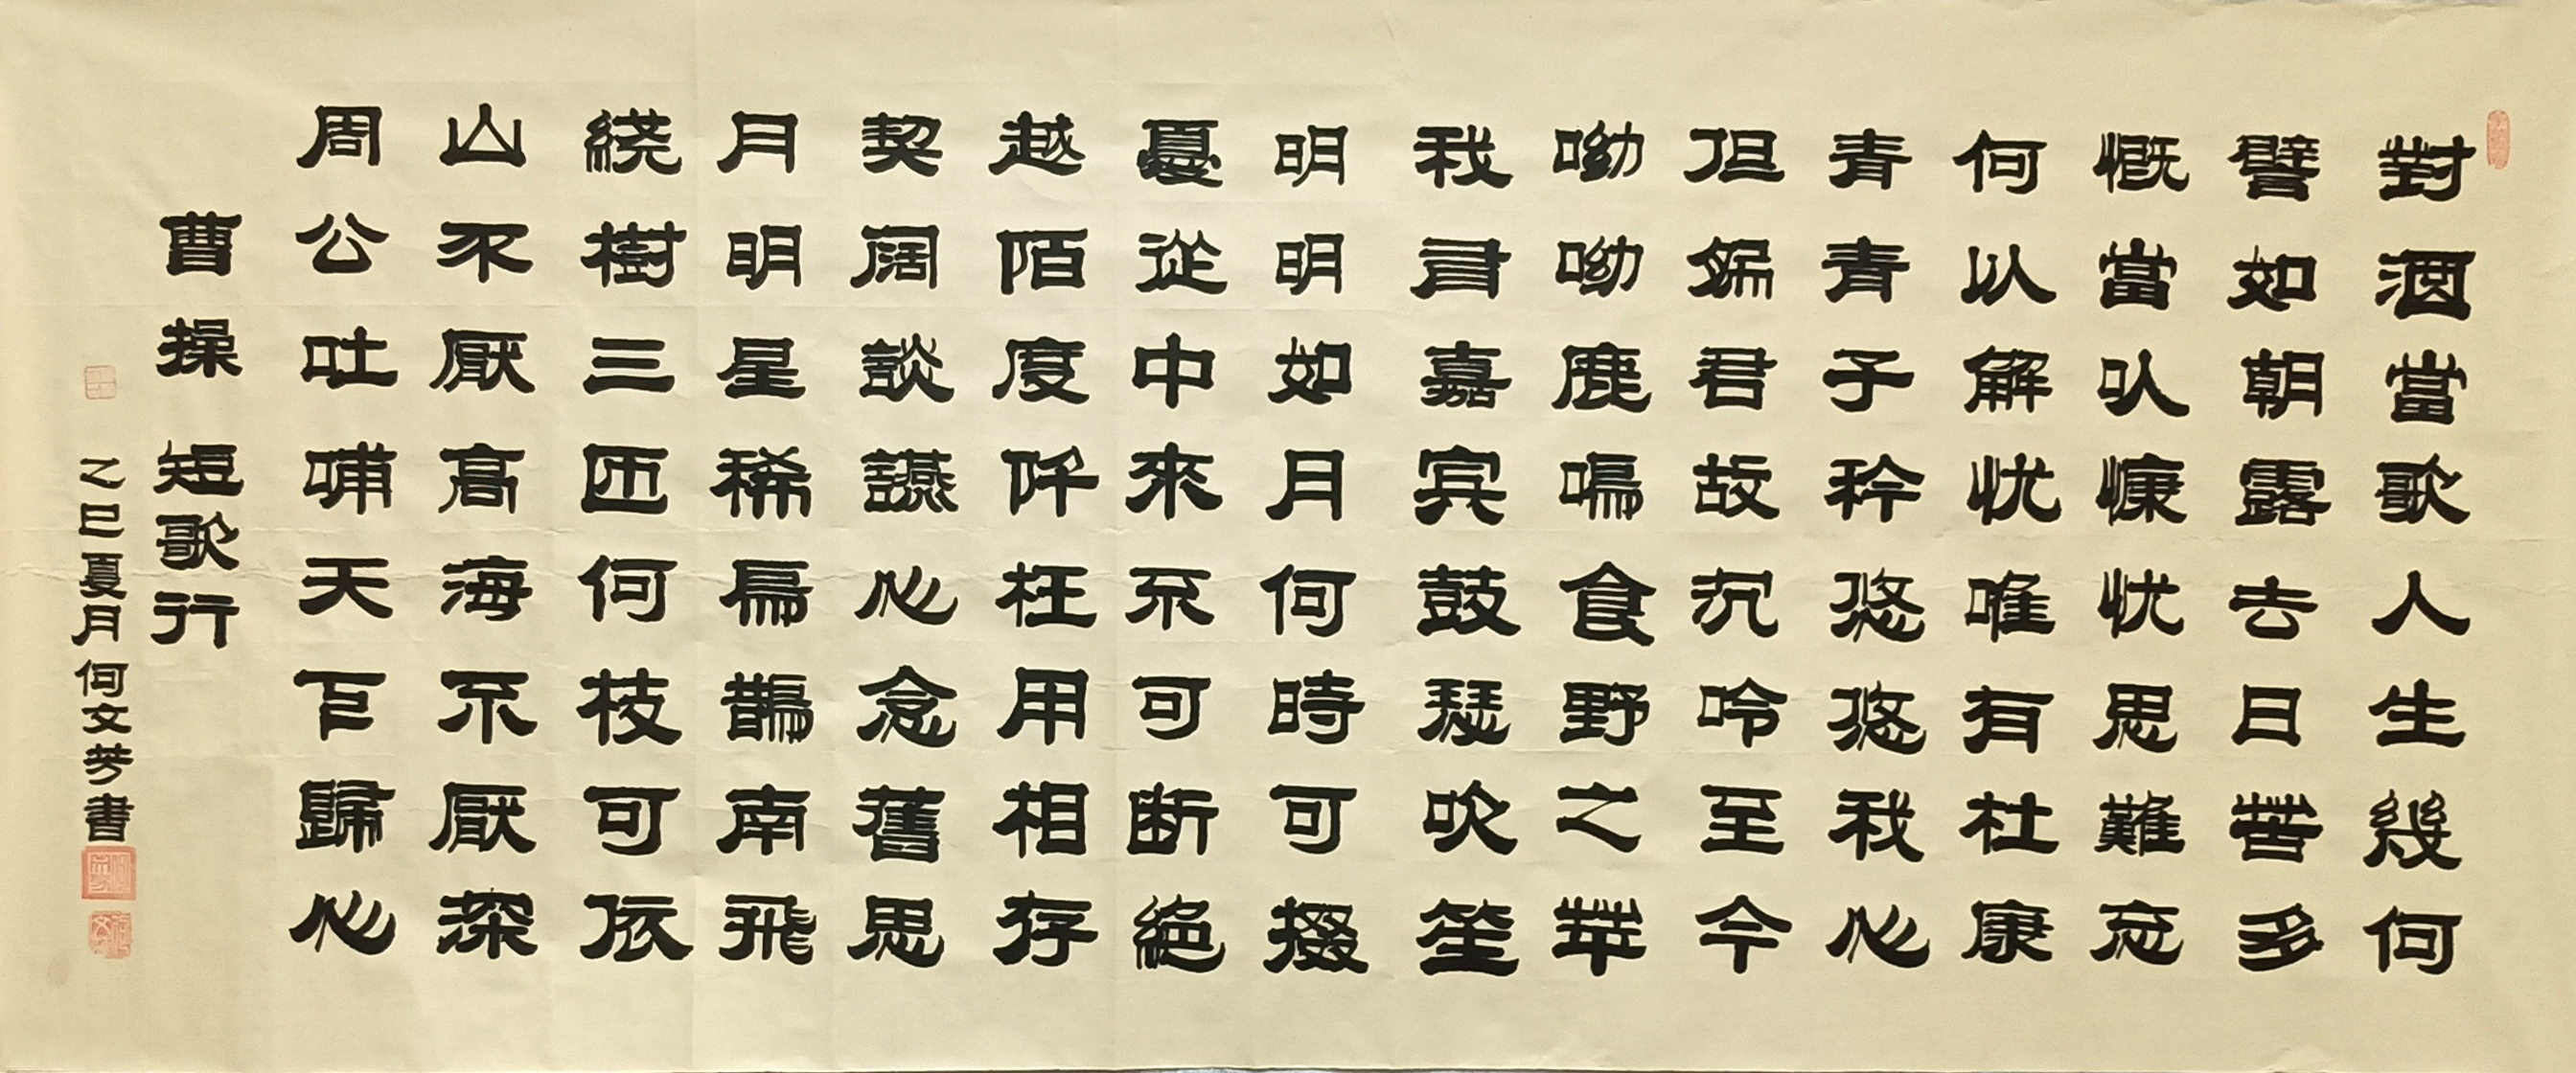 對酒當歌人生幾何
譬如朝露去日苦多
慨當以慷忧思難忘
何以解忧唯有杜康
青青子衿悠悠我心
但為君故沉吟至今
呦呦鹿鳴食野之苹
我有嘉宾鼓瑟吹笙
明明如月何時可掇
憂從中來不可断絕
越陌度阡枉用相存
契阔談讌心念舊恩
月明星稀烏鵲南飛
繞樹三匝何枝可依
山不厭高海不厭深
周公吐哺天下歸心
曹操 短歌行
乙巳夏月何文芳書